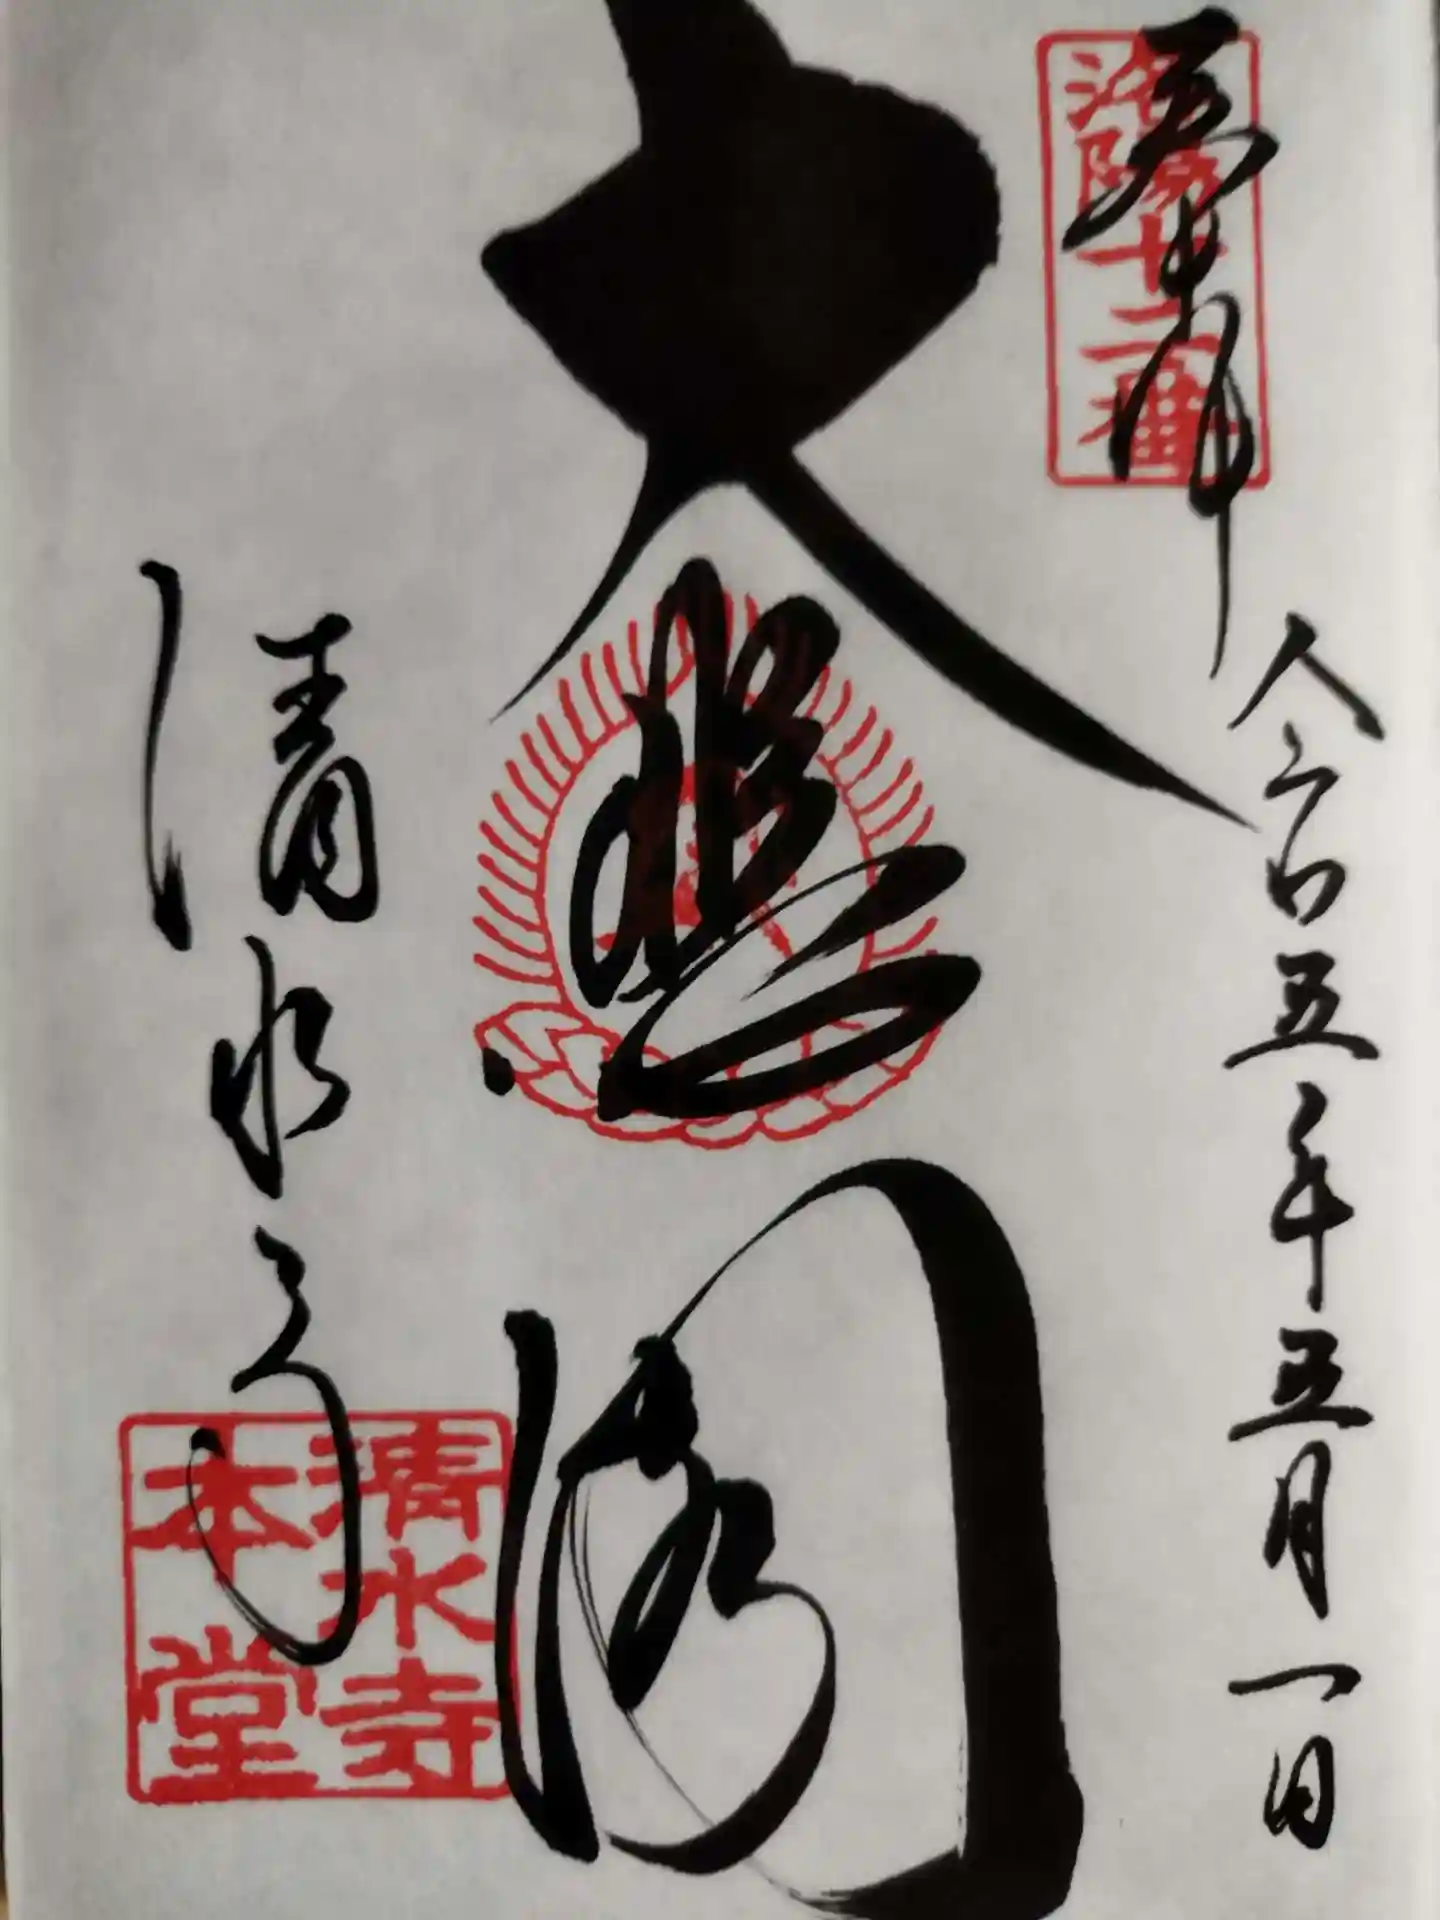 奉拝
洛陽十二番
令和五年五月一日
大悲閣
清水寺
清水寺
本堂